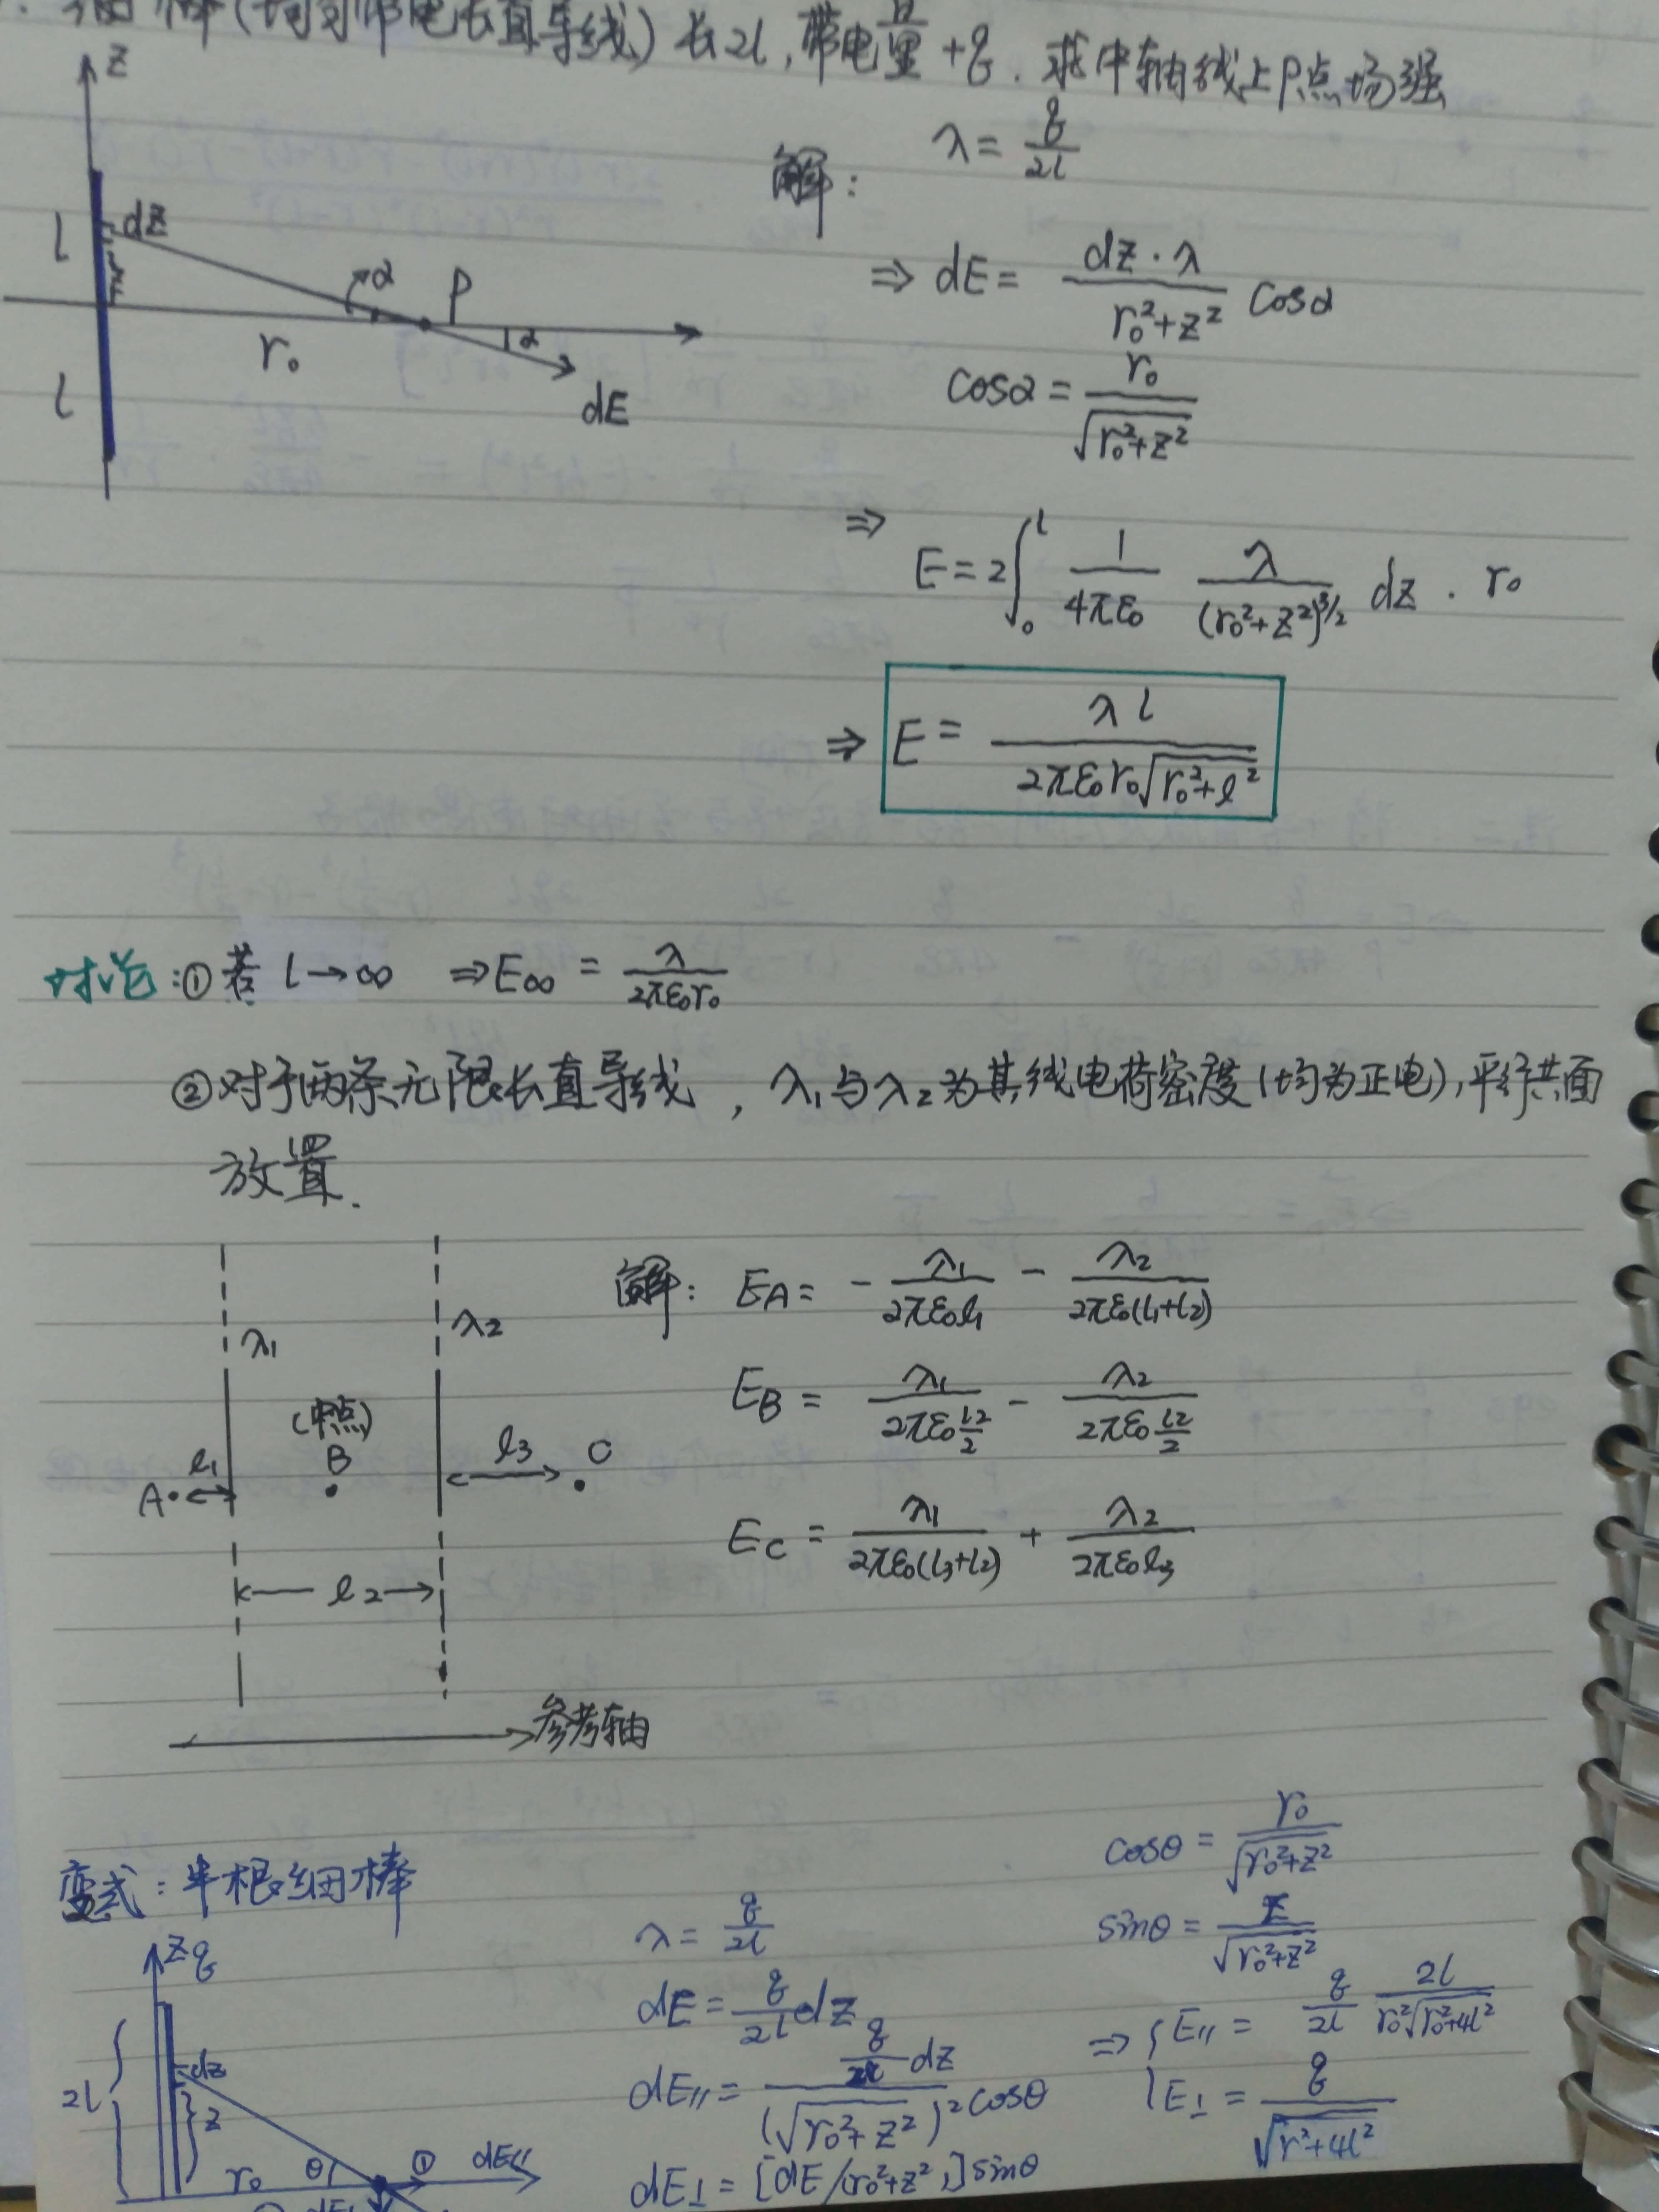 细棒(均匀带电长直导线)长2l,带电量+q.求中轴线上P点场强
z
l
dz
z
α
P
r₀
α
dE
l
解:
λ = q/2l
⇒ dE = dz·λ/(r₀²+z²) cosα
cosα = r₀/√(r₀²+z²)
⇒ E = 2∫₀ˡ 1/(4πε₀) λ/(r₀²+z²)^(3/2) dz · r₀
⇒ E = λl/(2πε₀r₀√(r₀²+l²))
讨论:①若 l→∞ ⇒E∞ = λ/(2πε₀r₀)
②对于两条无限长直导线,λ₁与λ₂为其线电荷密度(均为正电),平行共面
放置.
λ₁
λ₂
(中点)
B
l₁
A
l₃
C
l₂
参考轴
解: E_A = -λ₁/(2πε₀l₁) - λ₂/(2πε₀(l₁+l₂))
E_B = λ₁/(2πε₀ l₂/2) - λ₂/(2πε₀ l₂/2)
E_C = λ₁/(2πε₀(l₃+l₂)) + λ₂/(2πε₀l₃)
变式:半根细棒
z
q
2l
dz
z
r₀
θ
①
dE∥
λ = q/2l
dE = q/2l dz
dE∥ = (q/2l dz)/(√(r₀²+z²))² cosθ
dE⊥ = [dE/(r₀²+z²)]sinθ
cosθ = r₀/√(r₀²+z²)
sinθ = z/√(r₀²+z²)
⇒ { E∥ = q/2l 2l/(r₀²√(r₀²+4l²))
E⊥ = q/√(r²+4l²)